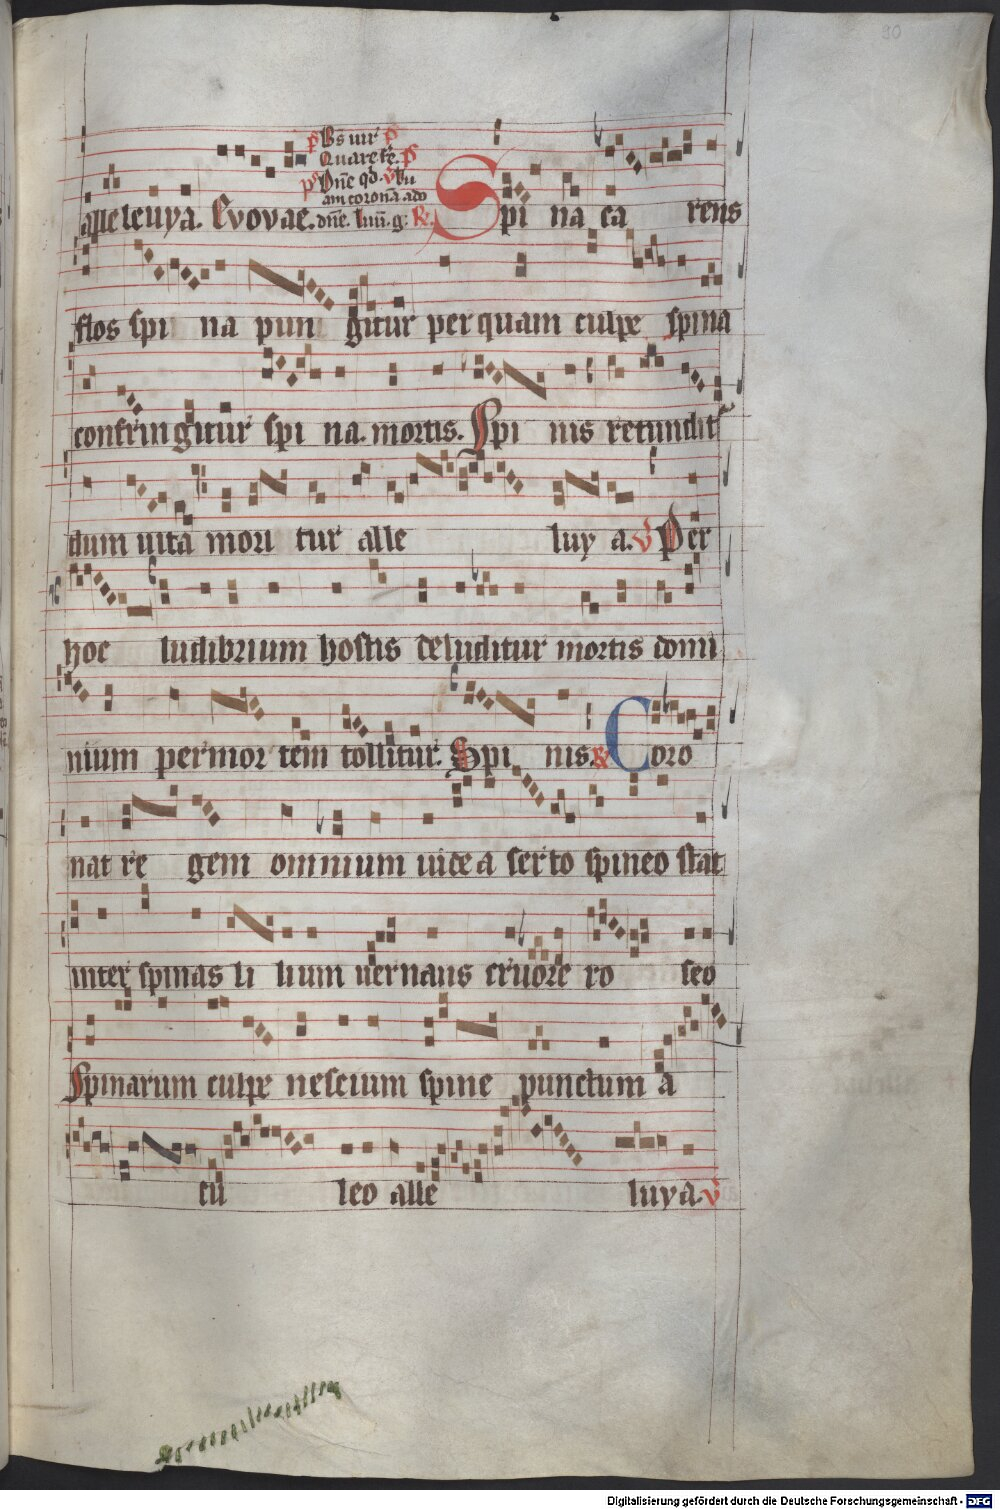 90
p̄ Bs̄ uir p̄
Quare fe. p̄
ps Dn̄e qd. v̄ Tu
am coronā. ado
alleleuya. Evovae. dn̄e. R. Spi na ca rens
flos spi na pun gitur per quam culpe spina
confringitur spi na. mortis. Spi nis retundit
dum uita mori tur alle luy a. v̄ Per
hoc ludibrium hostis deluditur mortis domi
nium per mor tem tollitur. Spi nis. R Coro
nat re gem omnium uice a serto spineo stat
inter spinas li lium uernans cruore ro seo
Spinarum culpe nescium spine punctum a
cu leo alle luya. v̄
Digitalisierung gefördert durch die Deutsche Forschungsgemeinschaft - DFG